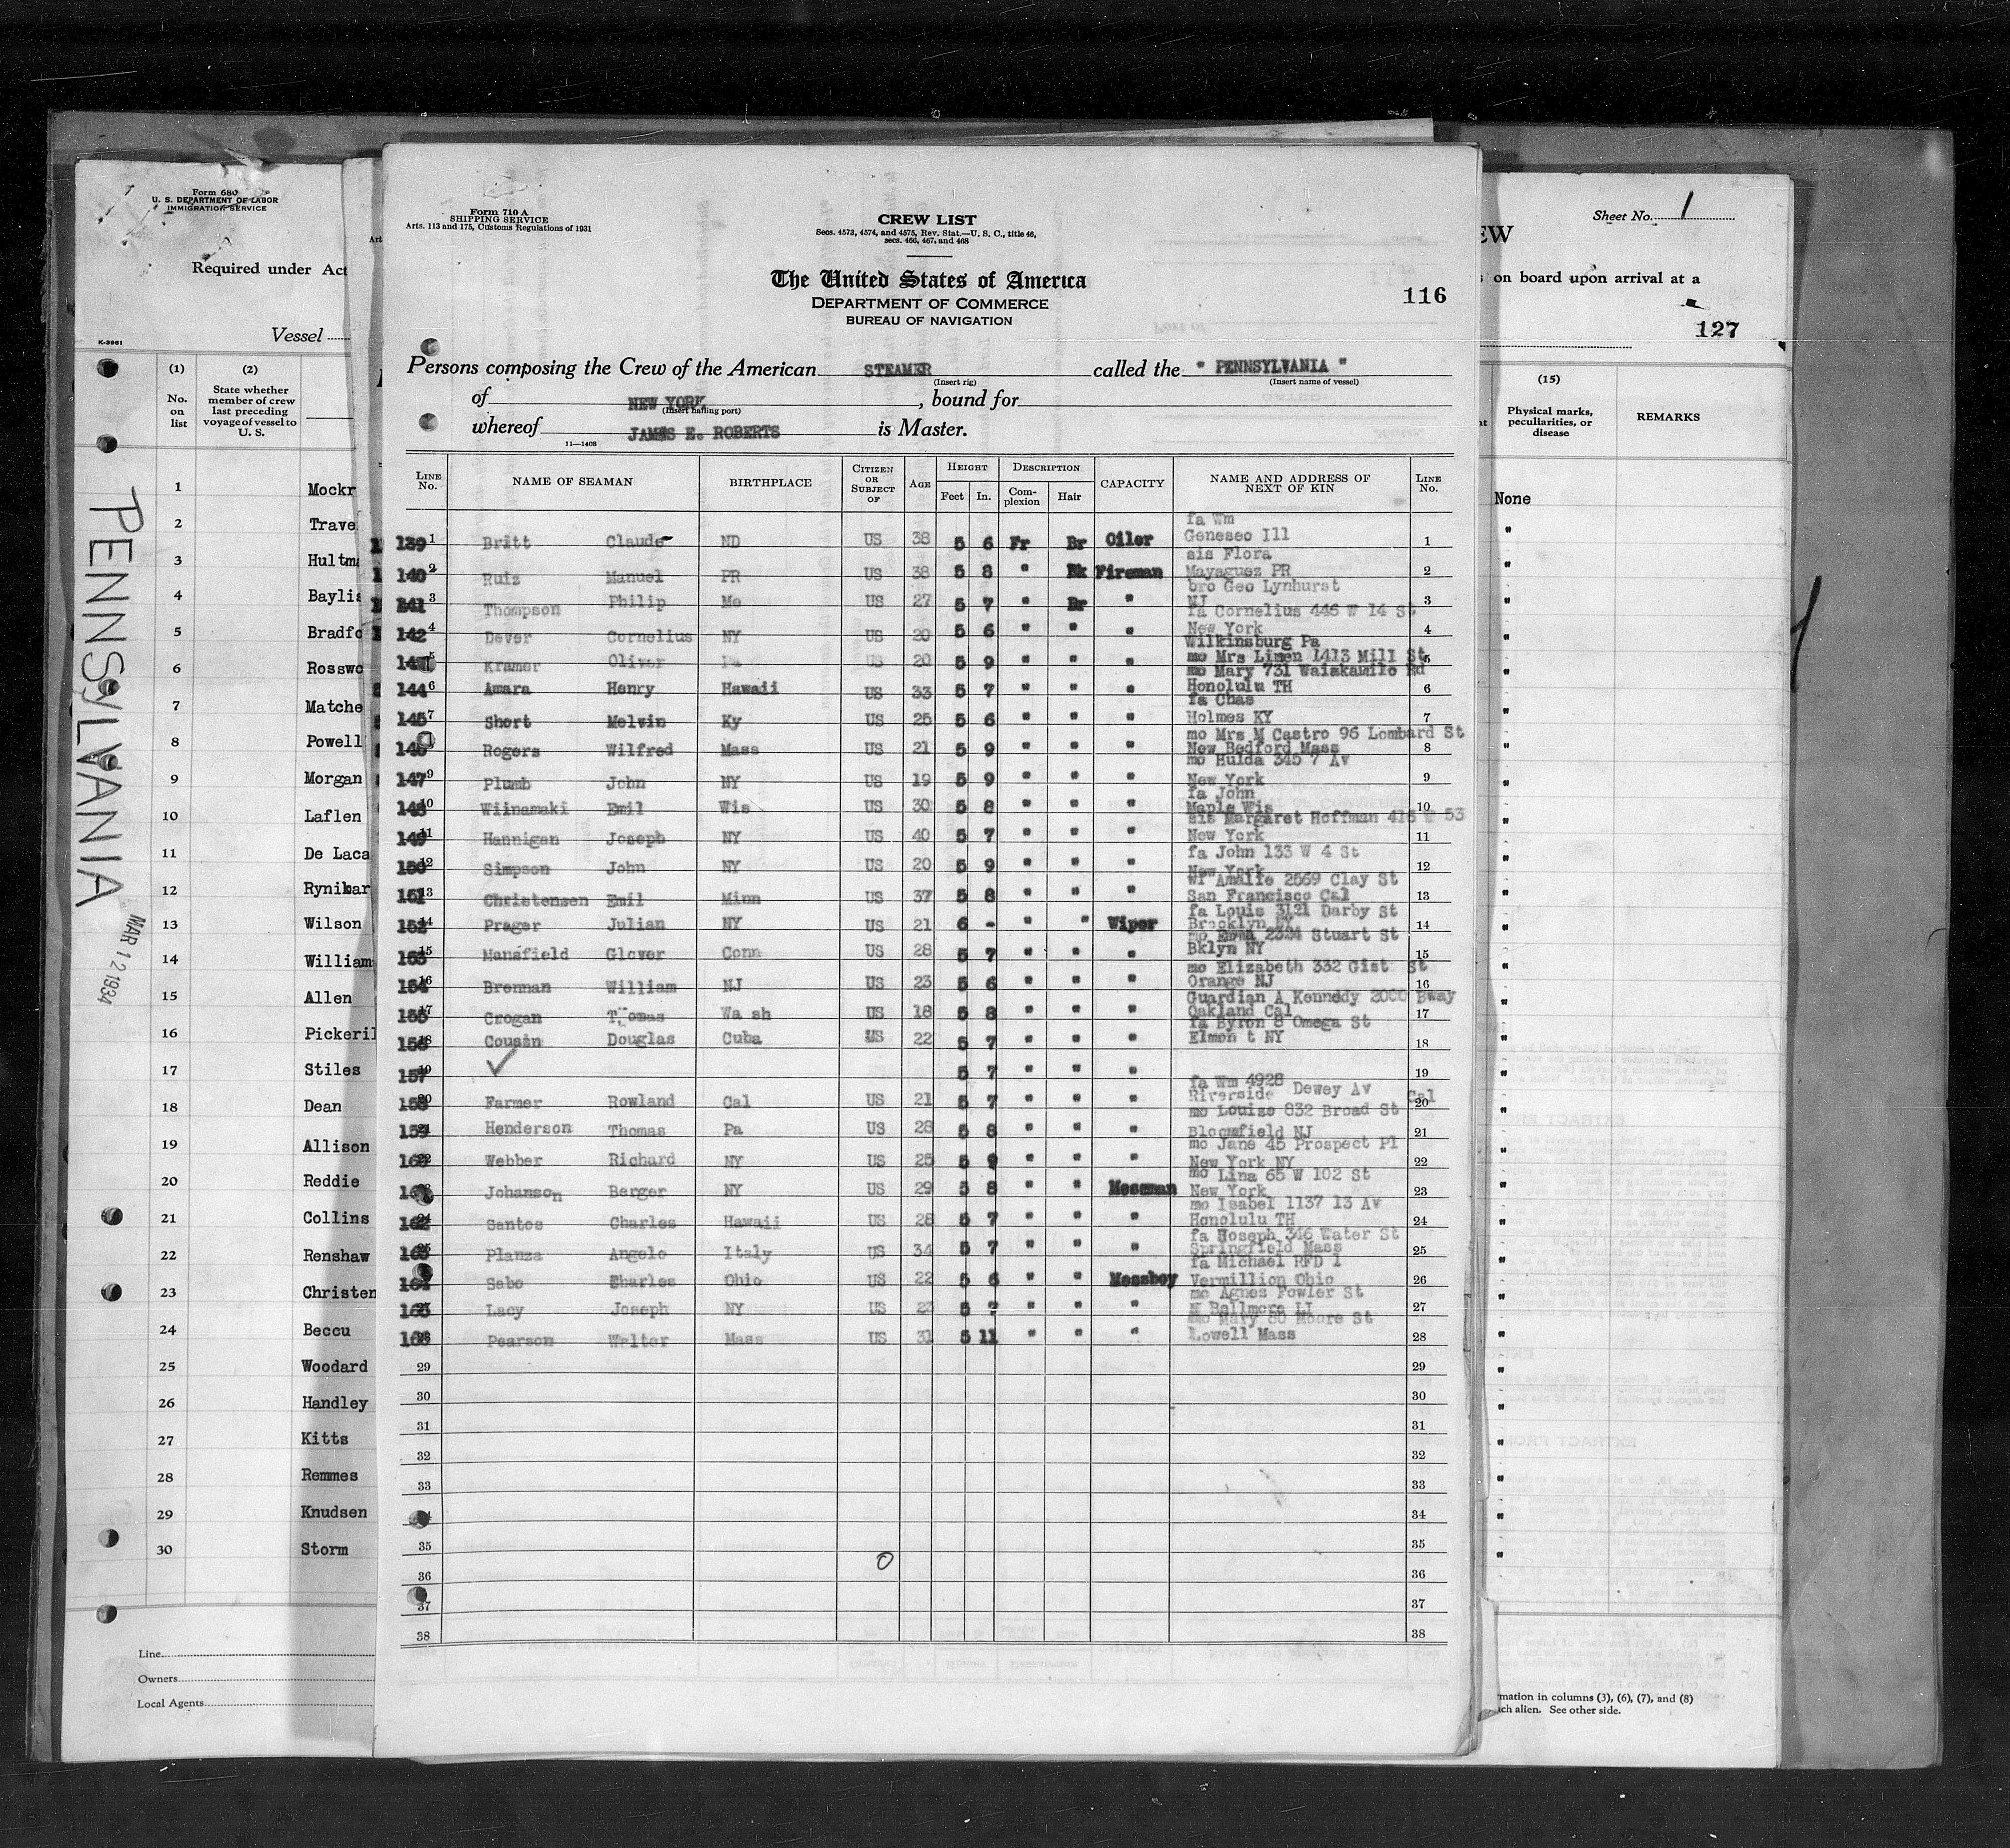 Form 680
U. S. DEPARTMENT OF LABOR
IMMIGRATION SERVICE
Required under Act
Vessel
K-3961
(1) (2)
No. on list
State whether member of crew last preceding voyage of vessel to U. S.
1 Mockr
2 Trave
3 Hultma
4 Baylis
5 Bradfo
6 Rosswo
7 Matche
8 Powell
9 Morgan
10 Laflen
11 De Laca
12 Rynikar
13 Wilson
14 William
15 Allen
16 Pickeril
17 Stiles
18 Dean
19 Allison
20 Reddie
21 Collins
22 Renshaw
23 Christen
24 Beccu
25 Woodard
26 Handley
27 Kitts
28 Remmes
29 Knudsen
30 Storm
Line
Owners
Local Agents
PENNSYLVANIA
MAR 12 1934
Form 710 A
SHIPPING SERVICE
Arts. 113 and 175, Customs Regulations of 1931
CREW LIST
Secs. 4573, 4574, and 4575, Rev. Stat.—U. S. C., title 46,
secs. 466, 467, and 468
The United States of America
DEPARTMENT OF COMMERCE
BUREAU OF NAVIGATION
116
Persons composing the Crew of the American STEAMER called the " PENNSYLVANIA "
(Insert rig) (Insert name of vessel)
of NEW YORK , bound for
(Insert hailing port)
whereof JAMES E. ROBERTS is Master.
11—1408
LINE No. NAME OF SEAMAN BIRTHPLACE CITIZEN OR SUBJECT OF AGE HEIGHT DESCRIPTION CAPACITY NAME AND ADDRESS OF NEXT OF KIN LINE No.
Feet In. Complexion Hair
fa Wm
139 1 Britt Claude ND US 38 5 6 Fr Br Oiler Geneseo Ill 1
sis Flora
140 2 Ruiz Manuel PR US 38 5 8 " Bk Fireman Mayaguez PR 2
bro Geo Lynhurst
141 3 Thompson Philip Me US 27 5 7 " Br " NJ 3
fa Cornelius 446 W 14 St
142 4 Dever Cornelius NY US 20 5 6 " " " New York 4
Wilkinsburg Pa
5 Kramer Oliver Pa US 20 5 9 " " " mo Mrs Limen 1413 Mill St 5
mo Mary 731 Waiakamilo Rd
144 6 Amara Henry Hawaii US 33 5 7 " " " Honolulu TH 6
fa Chas
145 7 Short Melvin Ky US 25 5 6 " " " Holmes KY 7
mo Mrs M Castro 96 Lombard St
146 Rogers Wilfred Mass US 21 5 9 " " " New Bedford Mass 8
mo Hulda 345 7 Av
147 9 Plumb John NY US 19 5 9 " " " New York 9
fa John
148 10 Wiinamaki Emil Wis US 30 5 8 " " " Maple Wis 10
sis Margaret Hoffman 416 W 53
149 11 Hannigan Joseph NY US 40 5 7 " " " New York 11
fa John 133 W 4 St
150 12 Simpson John NY US 20 5 9 " " " New York 12
wf Amalie 2569 Clay St
151 13 Christensen Emil Minn US 37 5 8 " " " San Francisco Cal 13
fa Louis 3121 Darby St
152 14 Prager Julian NY US 21 6 - " " Wiper Brooklyn NY 14
mo Emma 2324 Stuart St
153 15 Mansfield Glover Conn US 28 5 7 " " " Bklyn NY 15
mo Elizabeth 332 Gist St
154 16 Brennan William NJ US 23 5 6 " " " Orange NJ 16
Guardian A Kennedy 2000 Bway
155 17 Crogan Thomas Wa sh US 18 5 8 " " " Oakland Cal 17
fa Byron 8 Omega St
156 18 Cousin Douglas Cuba US 22 5 7 " " " Elmon t NY 18
157 19 5 7 " " " 19
fa Wm 4928 Dewey Av
158 20 Farmer Rowland Cal US 21 5 7 " " " Riverside Cal 20
mo Louise 832 Broad St
159 21 Henderson Thomas Pa US 28 5 8 " " " Bloomfield NJ 21
mo Jane 45 Prospect Pl
160 22 Webber Richard NY US 25 5 9 " " " New York NY 22
mo Lina 65 W 102 St
Johanson Berger NY US 29 5 8 " " Messman New York 23
mo Isabel 1137 13 Av
162 24 Santos Charles Hawaii US 28 5 7 " " " Honolulu TH 24
fa Hoseph 346 Water St
163 25 Planza Angelo Italy US 34 5 7 " " " Springfield Mass 25
fa Michael RFD 1
164 Sabo Charles Ohio US 22 5 6 " " Messboy Vermillion Ohio 26
mo Agnes Fowler St
165 27 Lacy Joseph NY US 23 5 " " " N Bellmore LI 27
mo Mary 80 Moore St
166 28 Pearson Walter Mass US 31 5 11 " " " Lowell Mass 28
29 29
30 30
31 31
32 32
33 33
34
35 35
36 36
37 37
38 38
Sheet No. 1
EW
on board upon arrival at a
127
(15)
Physical marks, peculiarities, or disease
REMARKS
None
mation in columns (3), (6), (7), and (8)
ach alien. See other side.